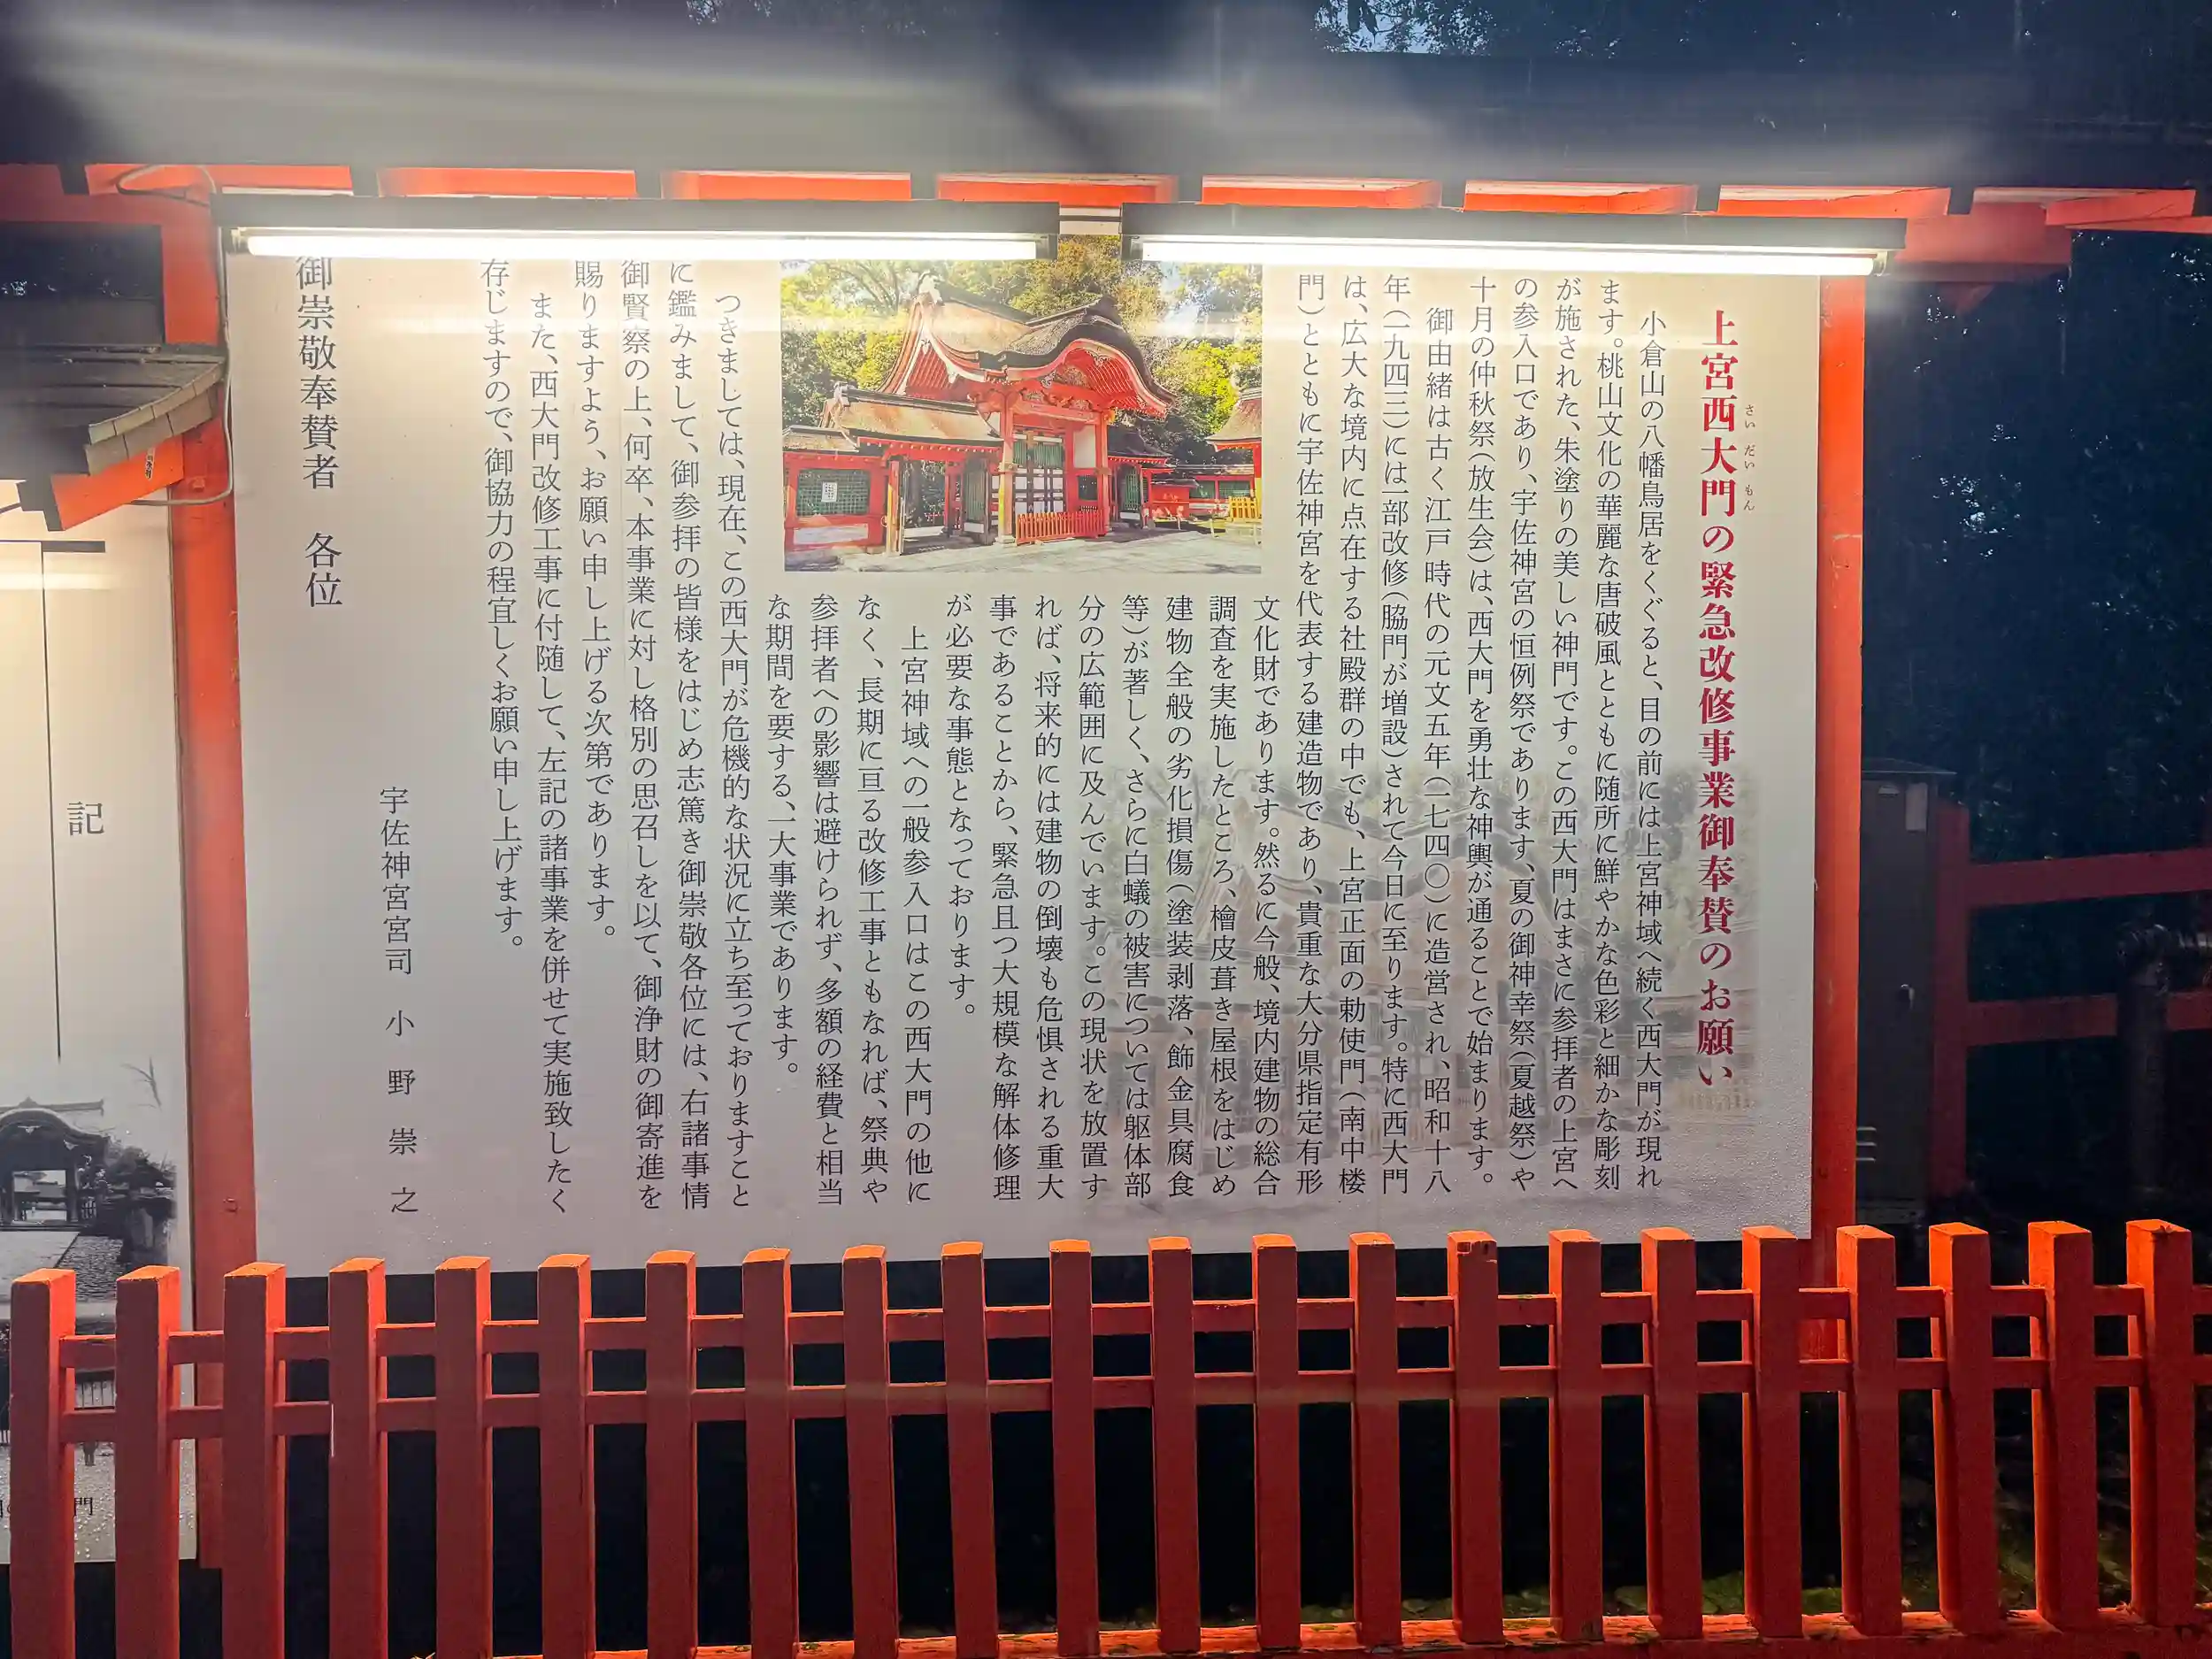 上宮西大門の緊急改修事業御奉賛のお願い
さいだいもん
小倉山の八幡鳥居をくぐると、目の前には上宮神域へ続く西大門が現れ
ます。桃山文化の華麗な唐破風とともに随所に鮮やかな色彩と細かな彫刻
が施された、朱塗りの美しい神門です。この西大門はまさに参拝者の上宮へ
の参入口であり、宇佐神宮の恒例祭であります、夏の御神幸祭(夏越祭)や
十月の仲秋祭(放生会)は、西大門を勇壮な神輿が通ることで始まります。
御由緒は古く江戸時代の元文五年(一七四〇)に造営され、昭和十八
年(一九四三)には一部改修(脇門が増設)されて今日に至ります。特に西大門
は、広大な境内に点在する社殿群の中でも、上宮正面の勅使門(南中楼
門)とともに宇佐神宮を代表する建造物であり、貴重な大分県指定有形
文化財であります。然るに今般、境内建物の総合
調査を実施したところ、檜皮葺き屋根をはじめ
建物全般の劣化損傷(塗装剥落、飾金具腐食
等)が著しく、さらに白蟻の被害については躯体部
分の広範囲に及んでいます。この現状を放置す
れば、将来的には建物の倒壊も危惧される重大
事であることから、緊急且つ大規模な解体修理
が必要な事態となっております。
上宮神域への一般参入口はこの西大門の他に
なく、長期に亘る改修工事ともなれば、祭典や
参拝者への影響は避けられず、多額の経費と相当
な期間を要する、一大事業であります。
つきましては、現在、この西大門が危機的な状況に立ち至っておりますこと
に鑑みまして、御参拝の皆様をはじめ志篤き御崇敬各位には、右諸事情
御賢察の上、何卒、本事業に対し格別の思召しを以て、御浄財の御寄進を
賜りますよう、お願い申し上げる次第であります。
また、西大門改修工事に付随して、左記の諸事業を併せて実施致したく
存じますので、御協力の程宜しくお願い申し上げます。
宇佐神宮宮司 小野崇之
御崇敬奉賛者 各位
記
門